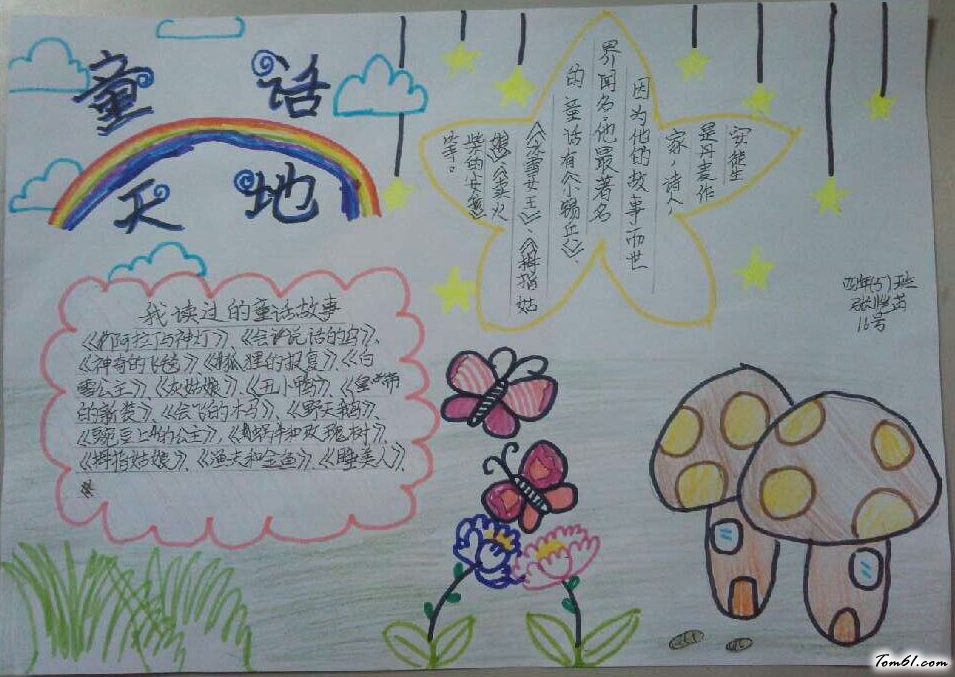 童话
天地
安徒生
是丹麦作
家,诗人,
因为他的故事而世
界闻名。他最著名
的童话有《小锡兵》、
《冰雪女王》、《拇指姑
娘》、《卖火
柴的小女孩》
等。
四年(5)班
16号
我读过的童话故事
《阿拉丁与神灯》、《会说话的鸟》、
《神奇的飞毯》、《狐狸的报复》、《白
雪公主》、《灰姑娘》、《丑小鸭》、《皇帝
的新装》、《会飞的木马》、《野天鹅》、
《豌豆上的公主》,《蜗牛和玫瑰树》、
《拇指姑娘》、《渔夫和金鱼》、《睡美人》、
Tom61.com